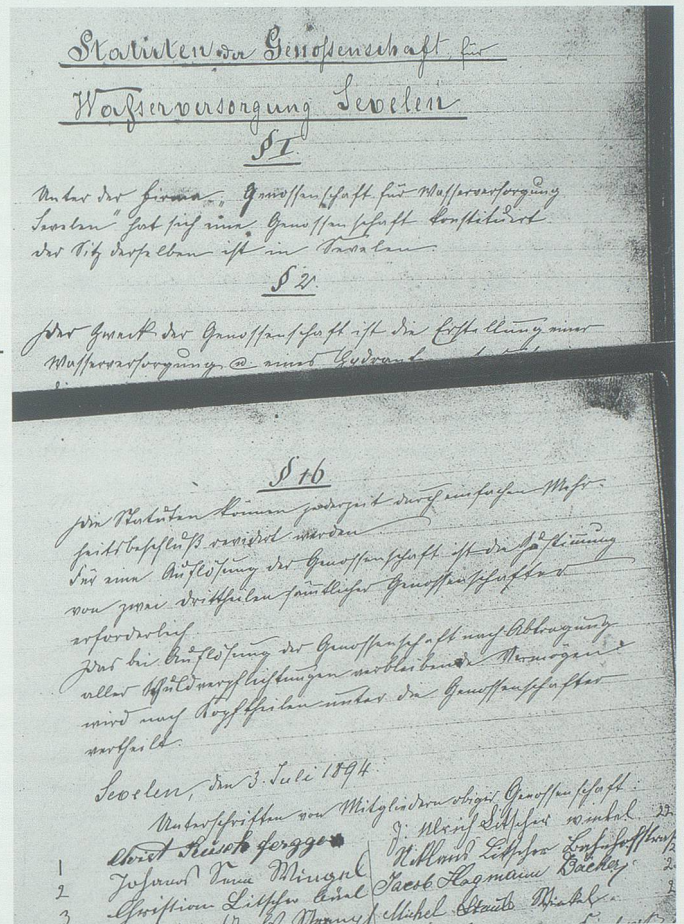 Statuten der Genossenschaft für
Wasserversorgung Sevelen
§ 1.
Unter der Firma „Genossenschaft für Wasserversorgung
Sevelen" hat sich eine Genossenschaft konstituirt
der Sitz derselben ist in Sevelen.
§ 2.
Der Zweck der Genossenschaft ist die Erstellung einer
Wasserversorgung u. eines
§ 16
Die Statuten können jederzeit durch einfachen Mehr-
heitsbeschluß revidirt werden
Für eine Auflösung der Genossenschaft ist die Zustimmung
von zwei Drittheilen sämtlicher Genossenschafter
erforderlich.
Das bei Auflösung der Genossenschaft nach Abtragung
aller Schuldverpflichtungen verbleibende Vermögen
wird nach Kopftheilen unter die Genossenschafter
vertheilt.
Sevelen, den 3. Juli 1894.
Unterschriften von Mitgliedern obiger Genossenschaft:
J. Ulrich Litscher
1 Christ
Niklaus Litscher Bahnhofstra
2 Johanes
Jacob Hagmann Bäcker
3 Christian Litscher
Michel